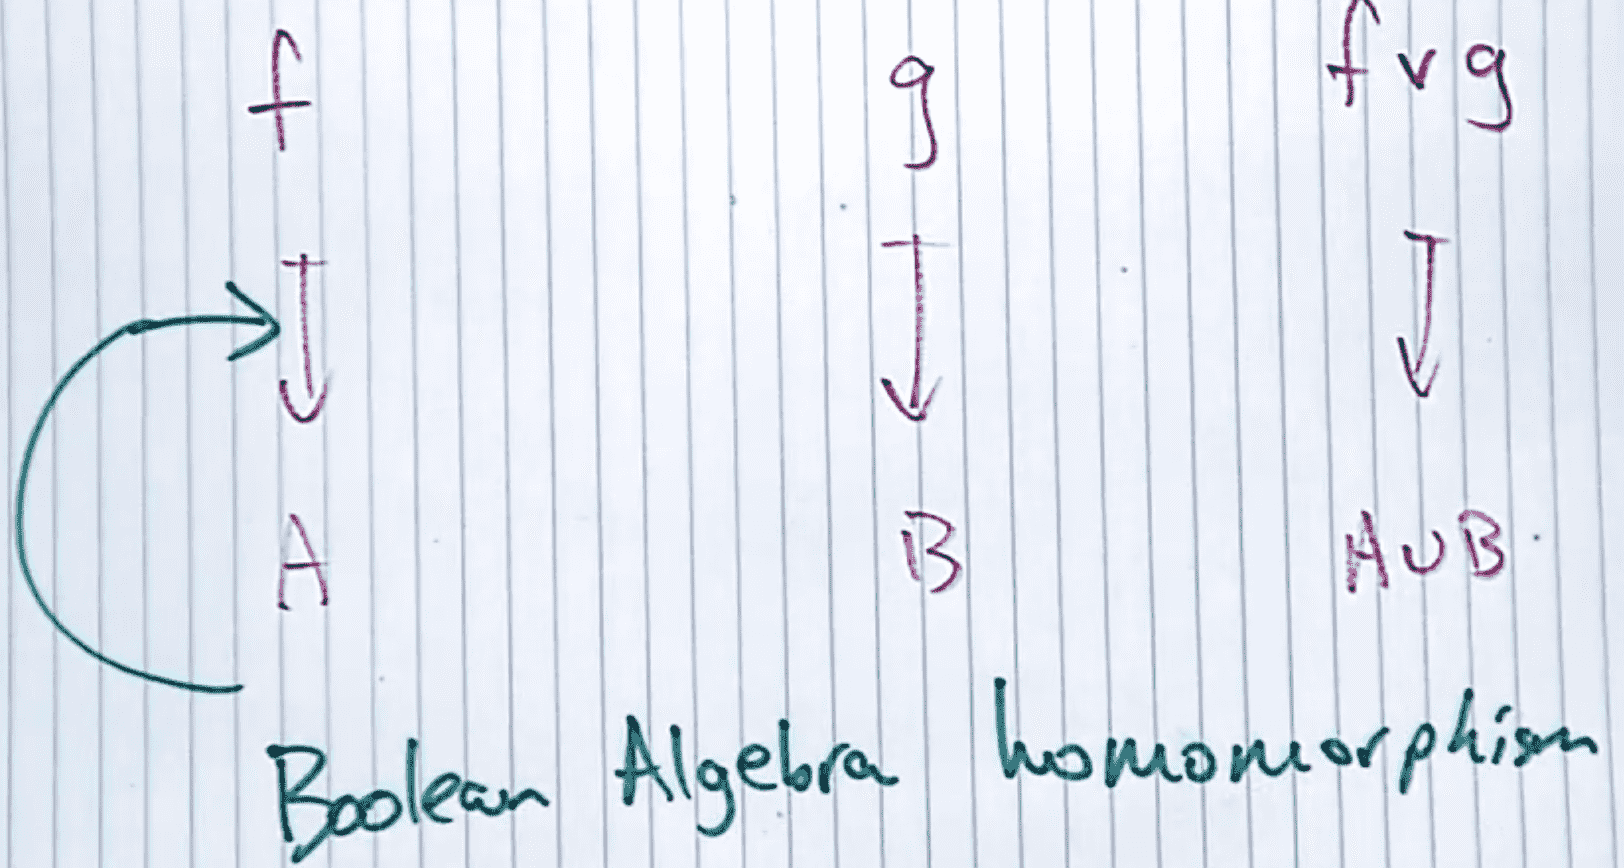 f g f ∨ g
↓ ↓ ↓
A B A ∪ B
Boolean Algebra homomorphism